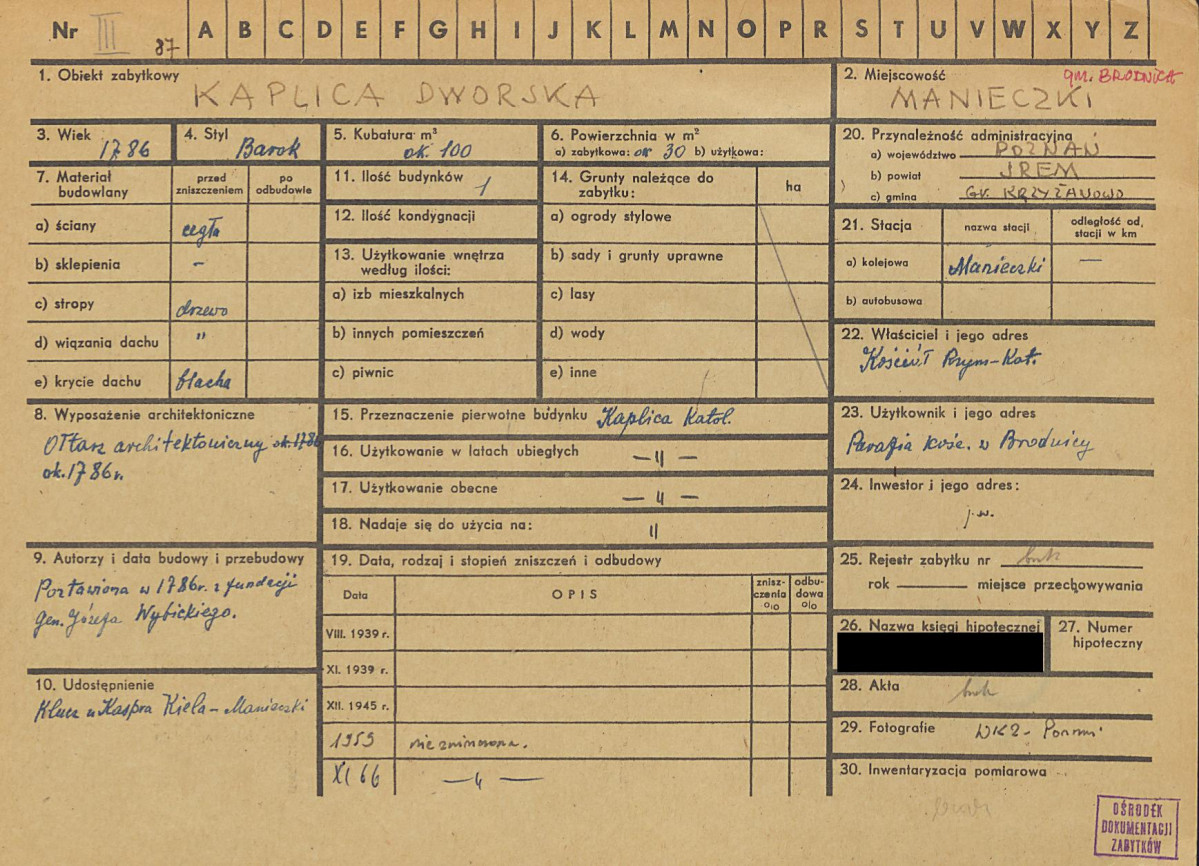 Nr III 87 A B C D E F G H I J K L M N O P R S T U V W X Y Z
1. Obiekt zabytkowy
KAPLICA DWORSKA
2. Miejscowość
gm. BRODNICA
MANIECZKI
3. Wiek
1786
4. Styl
Barok
5. Kubatura m³
ok. 100
6. Powierzchnia w m²
a) zabytkowa: ok 30 b) użytkowa:
7. Materiał budowlany
przed zniszczeniem
po odbudowie
a) ściany cegła
b) sklepienia –
c) stropy drzewo
d) wiązania dachu "
e) krycie dachu blacha
8. Wyposażenie architektoniczne
Ołtarz architektoniczny ok. 1786
ok. 1786 r.
9. Autorzy i data budowy i przebudowy
Postawiona w 1786 r. z fundacji
gen. Józefa Wybickiego.
10. Udostępnienie
Klucz u Kaspra Kiela – Manieczki
11. Ilość budynków 1
12. Ilość kondygnacji
13. Użytkowanie wnętrza
według ilości:
a) izb mieszkalnych
b) innych pomieszczeń
c) piwnic
14. Grunty należące do
zabytku:
ha
a) ogrody stylowe
b) sady i grunty uprawne
c) lasy
d) wody
e) inne
15. Przeznaczenie pierwotne budynku Kaplica Katol.
16. Użytkowanie w latach ubiegłych — " —
17. Użytkowanie obecne — " —
18. Nadaje się do użycia na: "
19. Data, rodzaj i stopień zniszczeń i odbudowy
Data
OPIS
znisz-
czenia
o/o
odbu-
dowa
o/o
VIII. 1939 r.
XI. 1939 r.
XII. 1945 r.
1959 nie zniszczona.
XI 66 — " —
20. Przynależność administracyjna
a) województwo POZNAŃ
b) powiat ŚREM
c) gmina GR. KRZYŻANOWO
21. Stacja
nazwa stacji
odległość od.
stacji w km
a) kolejowa Manieczki —
b) autobusowa
22. Właściciel i jego adres
Kościół Rzym-Kat.
23. Użytkownik i jego adres
Parafia kośc. w Brodnicy
24. Inwestor i jego adres:
j.w.
25. Rejestr zabytku nr brak
rok miejsce przechowywania
26. Nazwa księgi hipotecznej
27. Numer
hipoteczny
28. Akta brak
29. Fotografie WKZ - Poznań
30. Inwentaryzacja pomiarowa
brak
OŚRODEK
DOKUMENTACJI
ZABYTKÓW